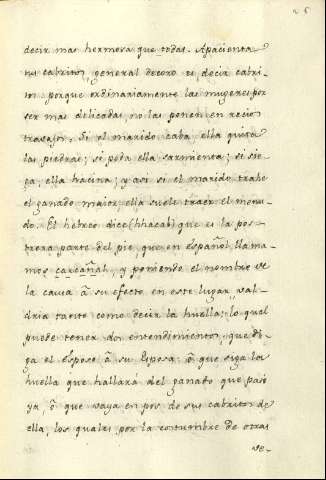 26
decir mas hermosa que todas. Apacienta
tus cabritos, general decoro es decir cabri-
tos porque ordinariamente las mugeres por
ser mas delicadas no las ponen en recios
travajos. Si el marido caba, ella quita
las piedras; si poda ella sarmienta; si sie-
ga, ella hacina; y asi si el marido trahe
el ganado maior, ella suele traer el menu-
do. El hebreo dice (hhacab) que es la pos-
trera parte del pie, que en español llama-
mos carcañal, y poniendo el nombre de
la causa â su efecto en este lugar, val-
dria tanto como decir la huella; lo qual
puede tener dos entendimientos, que di-
ga el esposo â su Esposa: ô que siga la
huella que hallará del ganado que pasó
ya ô que vaya en pos de sus cabritos de
ella, los quales por la costumbre de otras
ve-